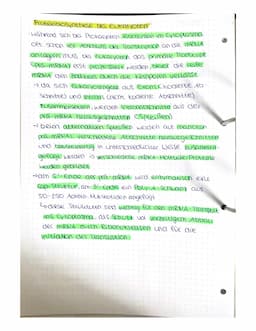 Proteinbiosynthese bei Eukaryoten
während sich bei Prokaryoten Ribosomen im Cytoplasma
oft schon vor Abschluss der Transkription an die mRNA
anlagern, muss bei Eukaryoten das primäre Transkript
(prä-mRNA) erst prozessiert werden, bevor die reife
mRNA den Zellkern durch die Kernporen verlässt
da sich Eukaryotengene aus Exons (codierende Ab-
schnitte) und Introns (nicht codierende Abschnitte)
zusammensetzen, werden Intronabschnitte aus der
prä-mRNA herausgeschnitten (Spleißen)
beim alternativen Spleißen werden aus mancher
prä-mRNA verschiedene Abschnitte herausgeschnitten
und in unterschiedlicher Weise zusammen-
gefügt wodurch verschiedene mRNA-Moleküle/Proteine
werden gebildet
am 5'-Ende der prä-mRNA wird enzymatisch eine
Cap-Struktur, am 3'-Ende ein Poly-A-Schwanz aus
50-250 Adenin-Nukleotiden angefügt
diese Strukturen sind wichtig für den mRNA-Transport
ins Cytoplasma, als Schutz vor vorzeitigem Abbau
der mRNA durch Ribonukleasen und für die
Initiation der Translation